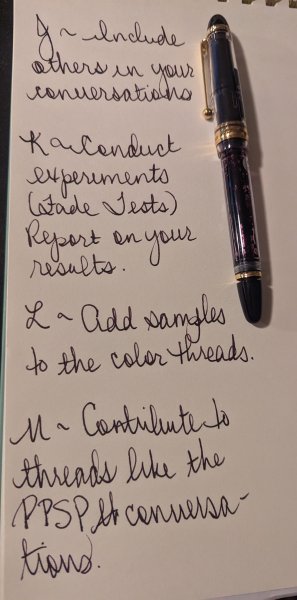 J ~ Include
others in your
conversations
K ~ Conduct
experiments
(Fade Tests)
Report on your
results.
L ~ Add samples
to the color threads.
M ~ Contribute to
threads like the
PPSP conversa-
tions.